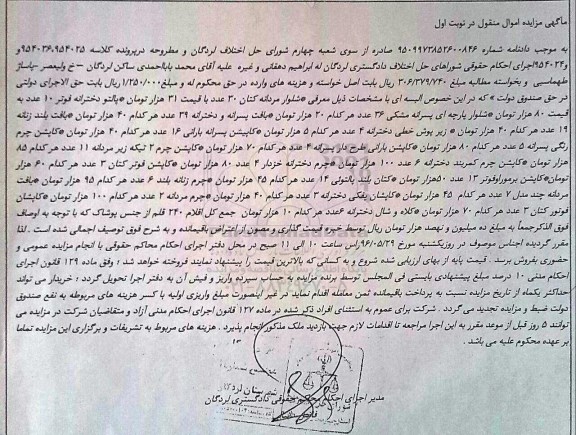 مأگهی مزایده اموال منقول در نوبت اول
به موجب دادنامه شماره ۹۵۰۹۹۷۳۸۵۲۶۰۰۸۴۶ صادره از سوی شعبه چهارم شورای حل اختلاف لردگان و مطروحه درپرونده کلاسه ۹۵۴۰۲۵،۹۵۴۰۳۶و
۹۵۴۰۲۴اجرای احکام حقوقی شوراهای حل اختلاف دادگستری لردگان له ابراهیم دهقانی و غیره علیه آقای محمد باباا‌حمدی ساکن لردگان –خ ولیعصر -پاساژ
طهماسبی و بخواسته مطالبه مبلغ ۳۰۶/۳۷۹/۷۴۰ ریال بابت اصل خواسته و هزینه های وارده در حق محکوم له و مبلغ۱/۲۵۰/۰۰۰ ریال بابت حق الاجرای دولتی
در حق صندوق دولت * که در این خصوص البسه ای با مشخصات ذیل معرفی *شلوار مردانه کتان ۳۰ عدد با قیمت ۳۱ هزار تومان *پالتو دخترانه فوتر ۱۰ عدد به
قیمت ۸۰ هزار تومان *شلوار پارچه ای پسرانه مشکی ۳۶ عدد هر کدام ۲۰ هزار تومان *بافت پسرانه و دخترانه ۳۹ عدد هر کدام ۴۰ هزار تومان *بافت بلند زنانه
۱۹ عدد هر کدام ۴۰ هزار تومان * زیر پوش خطی دخترانه ۴ عدد هر کدام ۵ هزار تومان *کاپیشن پسرانه بارانی ۱۶ عدد هر کدام ۴۰ هزار تومان *کاپشن چرم
رنگی پسرانه ۵ عدد هر کدام ۸۰ هزار تومان *کاپشن بارانی طرح دار پسرانه ۴ عدد هر کدام ۷۰ هزار تومان *کاپشن چرم ۲ تیکه زیر مردانه ۱۱ عدد هر کدام ۸۵
هزار تومان *کاپشن چرم کمربند دخترانه ۶ عدد ۱۰۰ هزار تومان *چرم دخترانه خزدار ۴ عدد ۸۰ هزار تومان *کاپشن فوتر کتان ۳ عدد هر کدام ۶۰ هزار
تومان*کاپشن برموراوفوتر ۱۳ عدد ۵۰هزار تومان *کتان بلند پالتوئی ۱۴ عدد هر کدام ۴۵ هزار تومان *چرم زنانه بلند ۶ عدد هر کدام ۹۵ هزار تومان *بافت
مردانه چند مدل ۷ عدد هر کدام ۴۵ هزار تومان *کاپشان پفکی دخترانه ۳ عدد هر کدام ۴۰ هزار تومان *چرم مردانه ۲ عدد هر کدام ۱۰۰ هزار تومان *کاپشان
فوتور کتان ۳ عدد هر کدام ۷۰ هزار تومان *کلاه و شال دخترانه ۶عدد هر کدام ۱۰ هزار تومان جمع کل اقلام ۲۴۰ قلم از جنس پوشاک که با توجه به اوصاف
فوق الذکرجمعاً به مبلغ ده میلیون و نهصد هزار تومان ریال توسط خبره قیمت گذاری و مصون از اعتراض باقیمانده و به شرح فوق توصیف اجمالی شده است . لذا
مقرر گردیده اجناس موصوف در روزیکشنبه مورخ ۹۶/۰۵/۲۹راس ساعت ۱۰ الی ۱۱ صبح در محل دفتر اجرای احکام محاکم حقوقی با انجام مزایده عمومی و
حضوری بفروش برسد . قیمت پایه از بهای ارزیابی شده شروع و به کسانی که بالاترین قیمت را پیشنهاد نمایند فروخته خواهد شد ؛ وفق ماده ۱۲۹ قانون اجرای
احکام مدنی ۱۰ درصد مبلغ پیشنهادی بایستی فی المجلس توسط برنده مزایده به حساب سپرده واریز و فیش آن به دفتر اجرا تحویل گردد ، خریدار می تواند
حداکثر یکماه از تاریخ مزایده نسبت به پرداخت باقیمانده ثمن معامله اقدام نماید در غیر اینصورت مبلغ واریزی اولیه با کسر هزینه های مربوطه به نفع صندوق
دولت ضبط و مزایده تجدید می گردد . شرکت برای عموم به استثنای افراد ذکر شده در ماده ۱۲۷ قانون اجرای احکام مدنی آزاد و متقاضیان شرکت در مزایده می
توانند ۵ روز قبل از موعد مقرر به این اجرا مراجعه تا اقدامات لازم جهت بازدید ملک مذکور انجام پذیرد . هزینه های مربوط به تشریفات و برگزاری این مزایده تماما
بر عهده محکوم علیه می باشد .
مدیر اجرای احکام محاکم حقوقی دادگستری لردگان